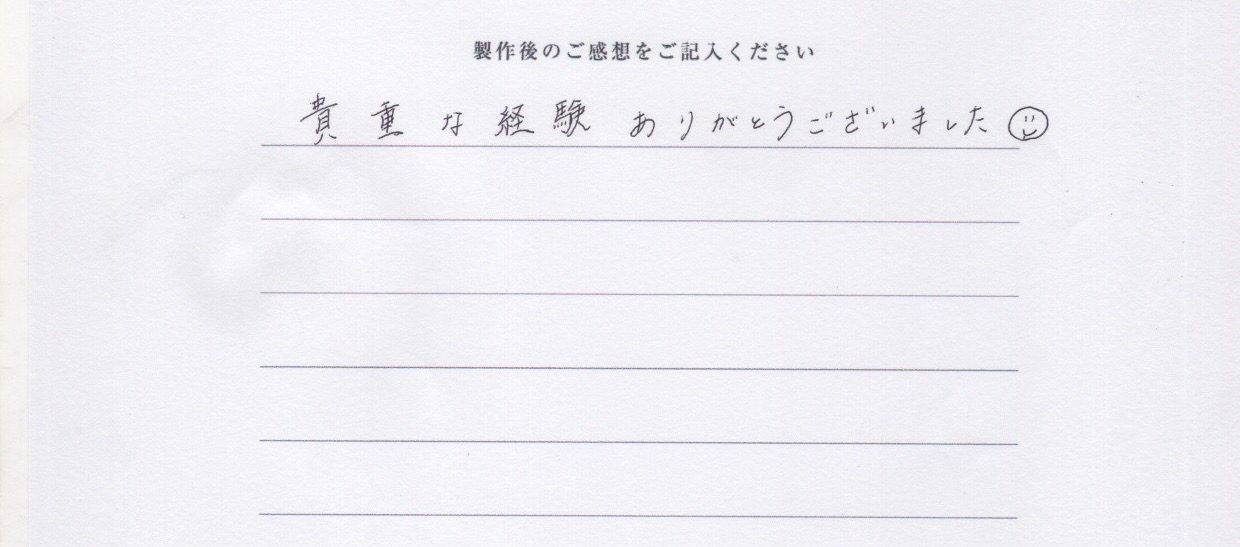 製作後のご感想をご記入ください
貴重な経験ありがとうございました☺